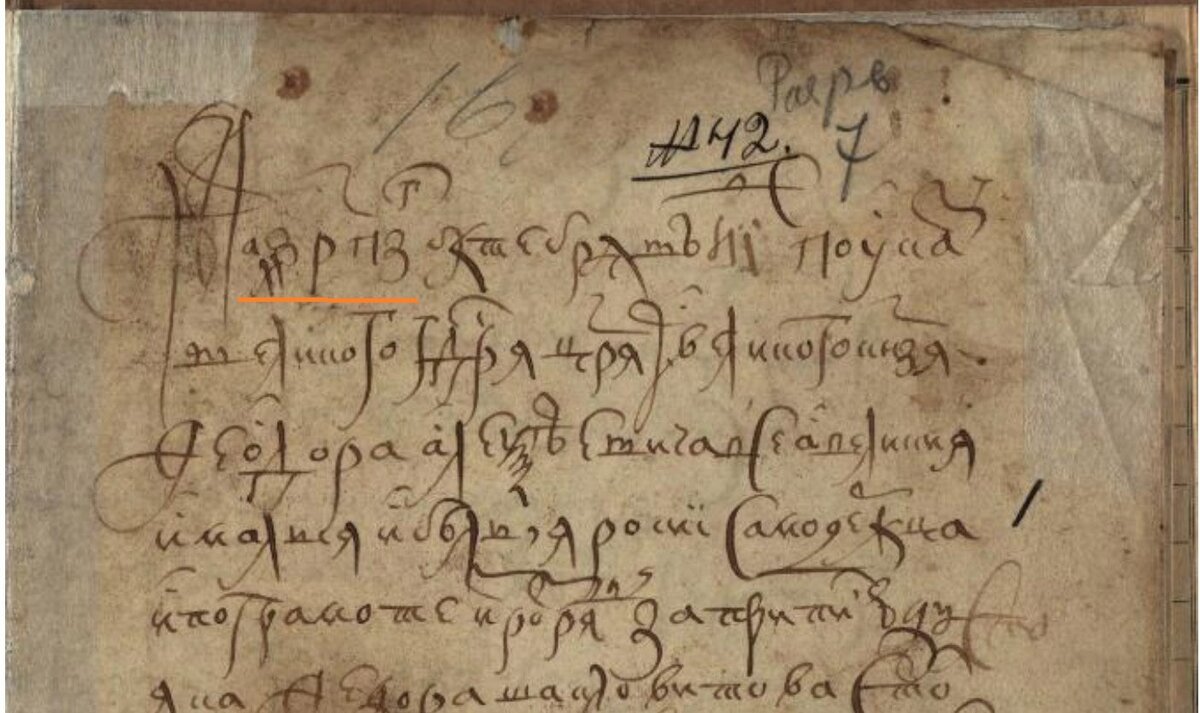 16
№ 42. 7
Лѣта ҂зрпзг октебря въ иі по указꙋ
великого гдря цря и великого кнзя
Феодора алеѯѣевича всеа великия
и малыя и белыя росиі самодержца
и по грамоте из розрядꙋ за приписю
Федора шакловитова сто